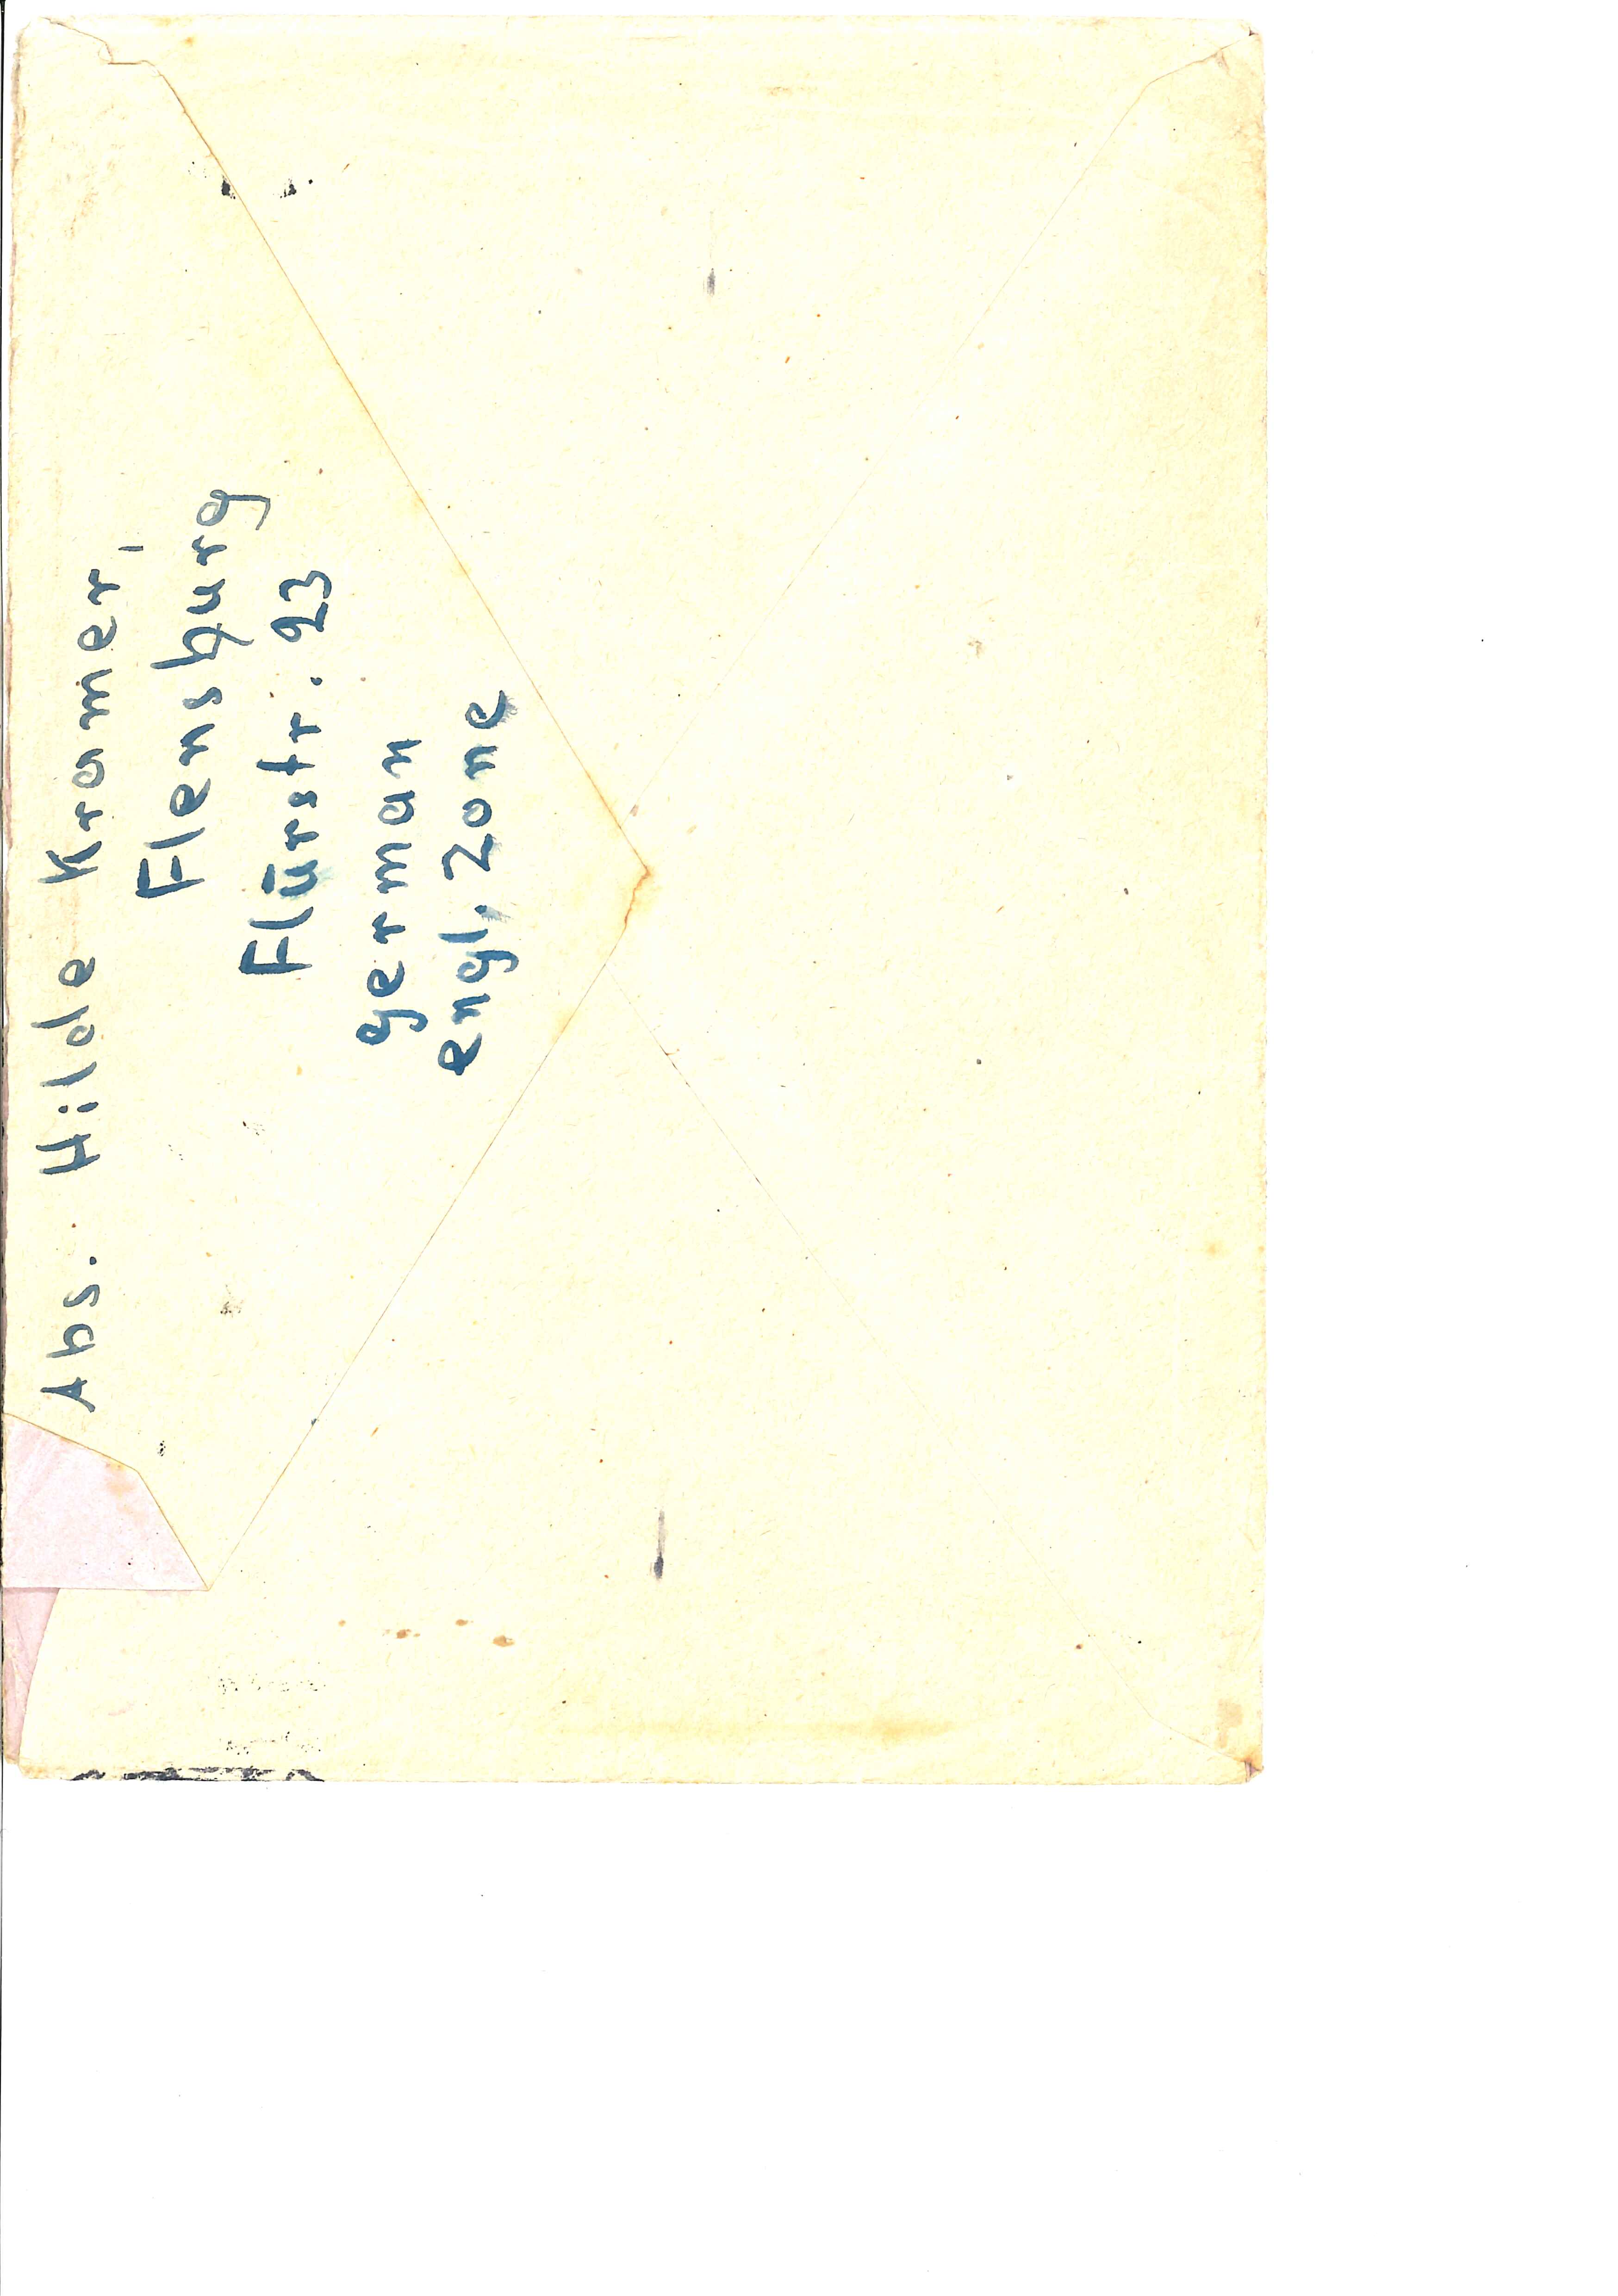 Abs. Hilde Kramer,
Flensburg
Flūrstr. 93
german
engl. Zone